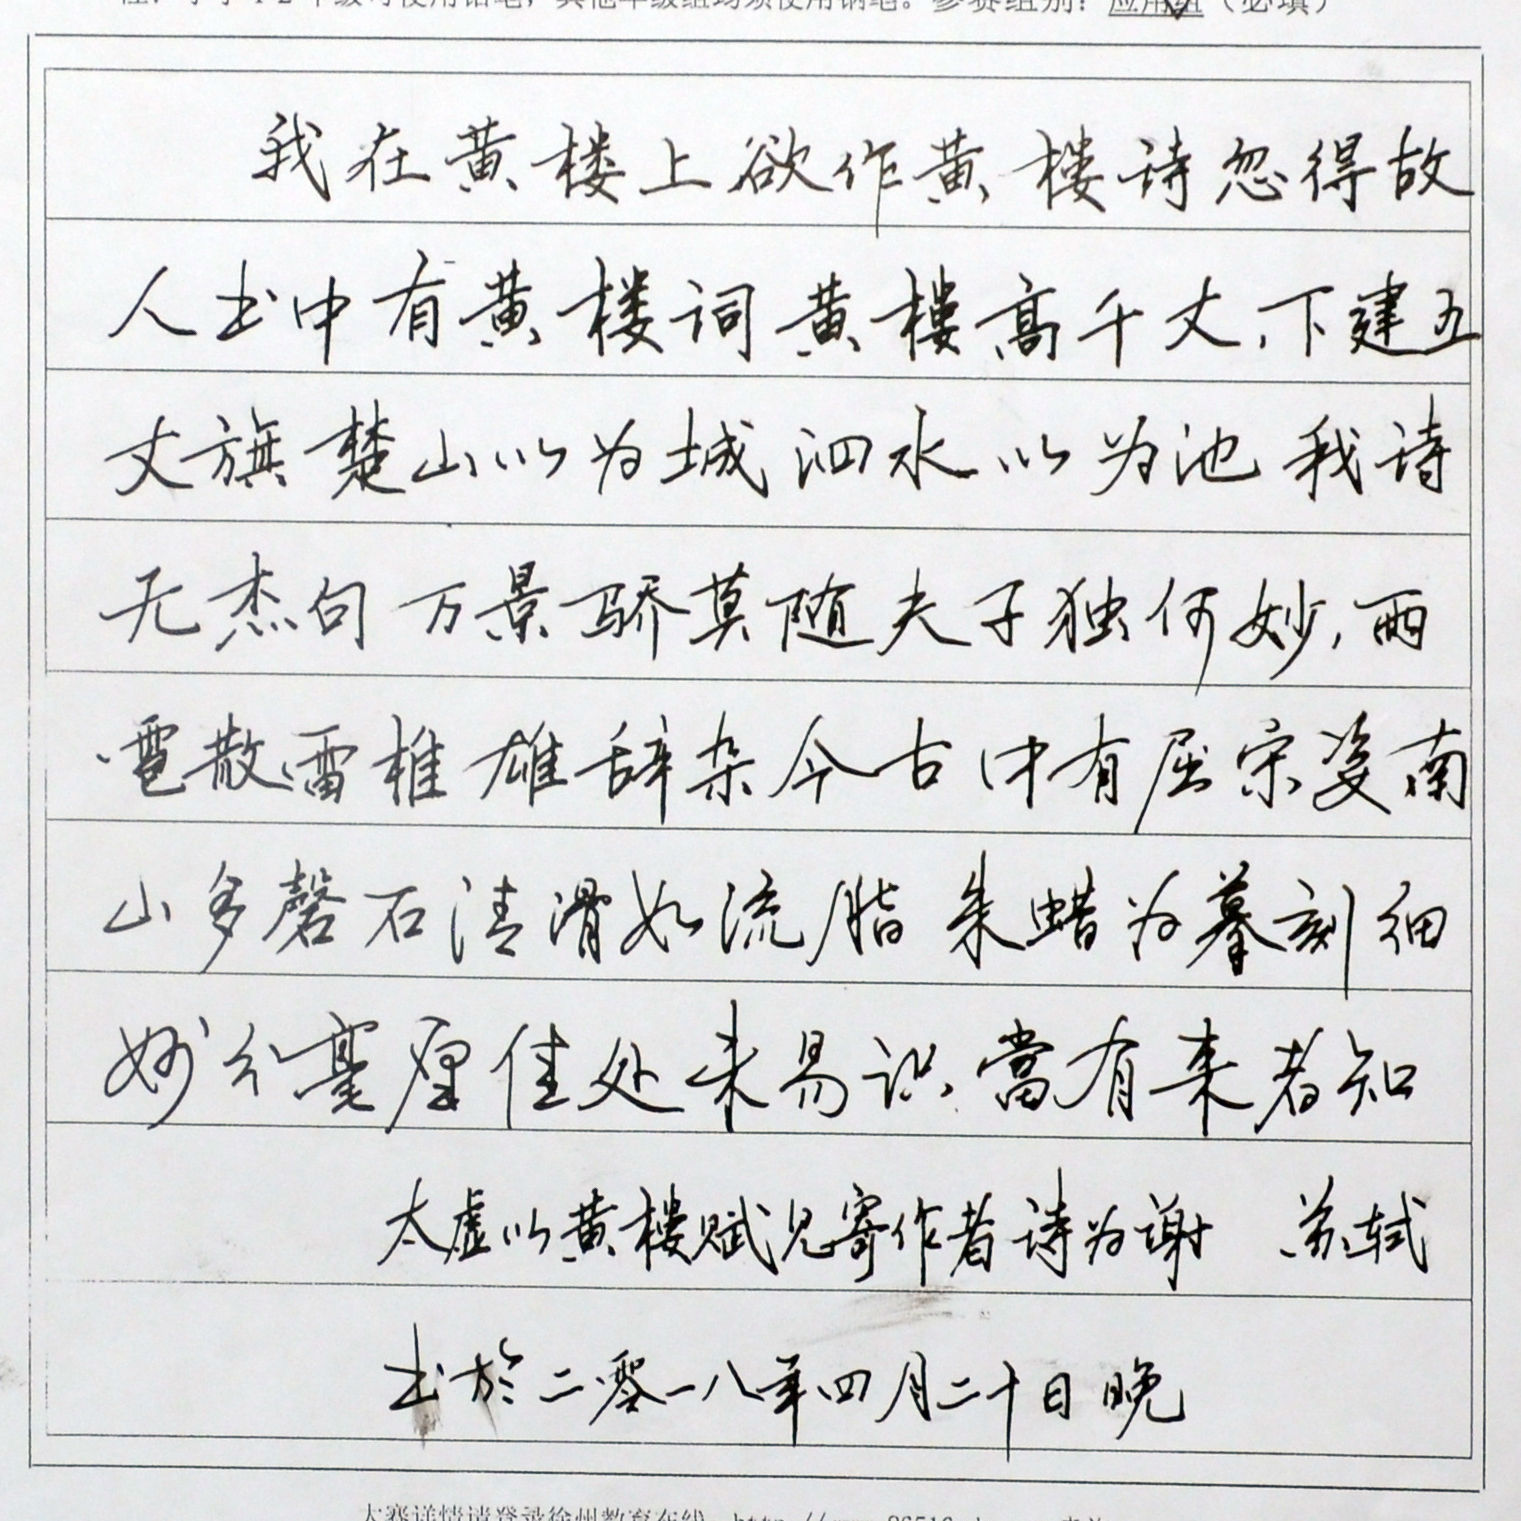 参赛组别：应用组（必填）
我在黄楼上欲作黄楼诗忽得故
人书中有黄楼词黄樓高千丈，下建五
丈旗楚山以为城泗水以为池我诗
无杰句万景骄莫随夫子独何妙，雨
雹散雷椎雄辞杂今古中有屈宋姿南
山多磬石清滑如流脂朱蜡为摹刻细
妙分毫厘佳处未易识當有来者知
太虚以黄楼赋见寄作者诗为谢 苏轼
书於二零一八年四月二十日晚
大赛详情请登录徐州教育在线